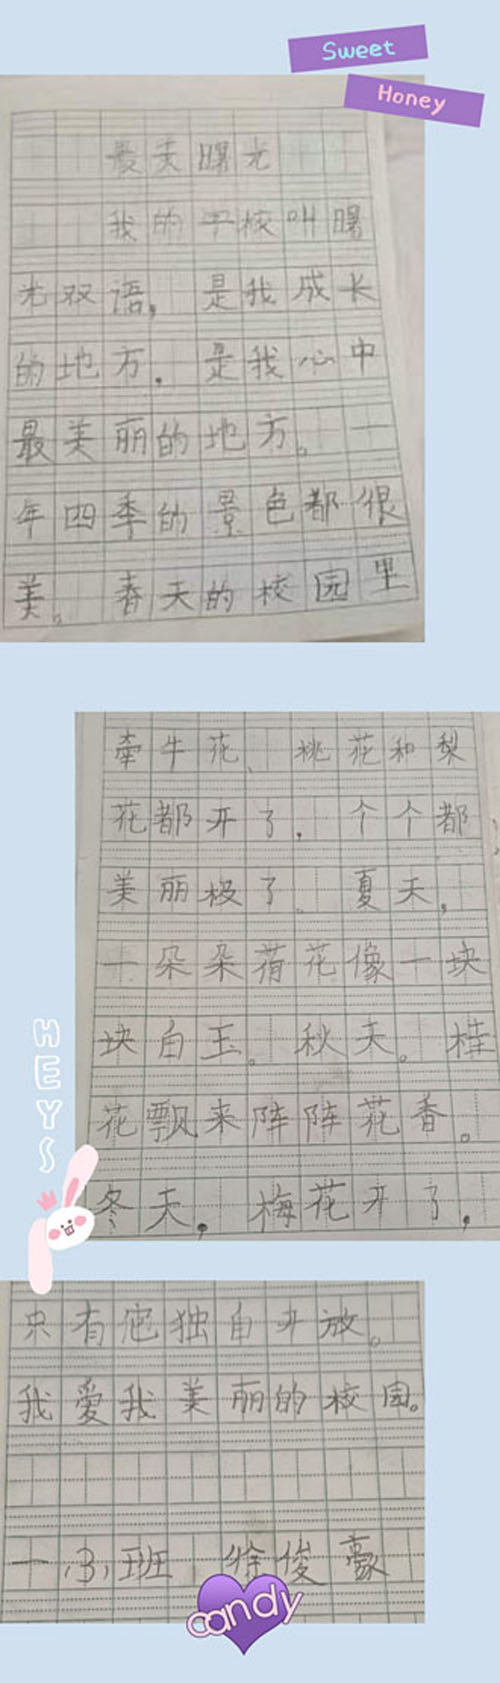 Sweet
Honey
最美曙光
我的学校叫曙
光双语，是我成长
的地方。是我心中
最美丽的地方。一
年四季的景色都很
美。春天的校园里
牵牛花、桃花和梨
花都开了，个个都
美丽极了。夏天，
一朵朵荷花像一块
块白玉。秋天。桂
花飘来阵阵花香。
冬天，梅花开了，
只有它独自开放。
我爱我美丽的校园。
一(3)班 徐俊豪
HEYS
candy